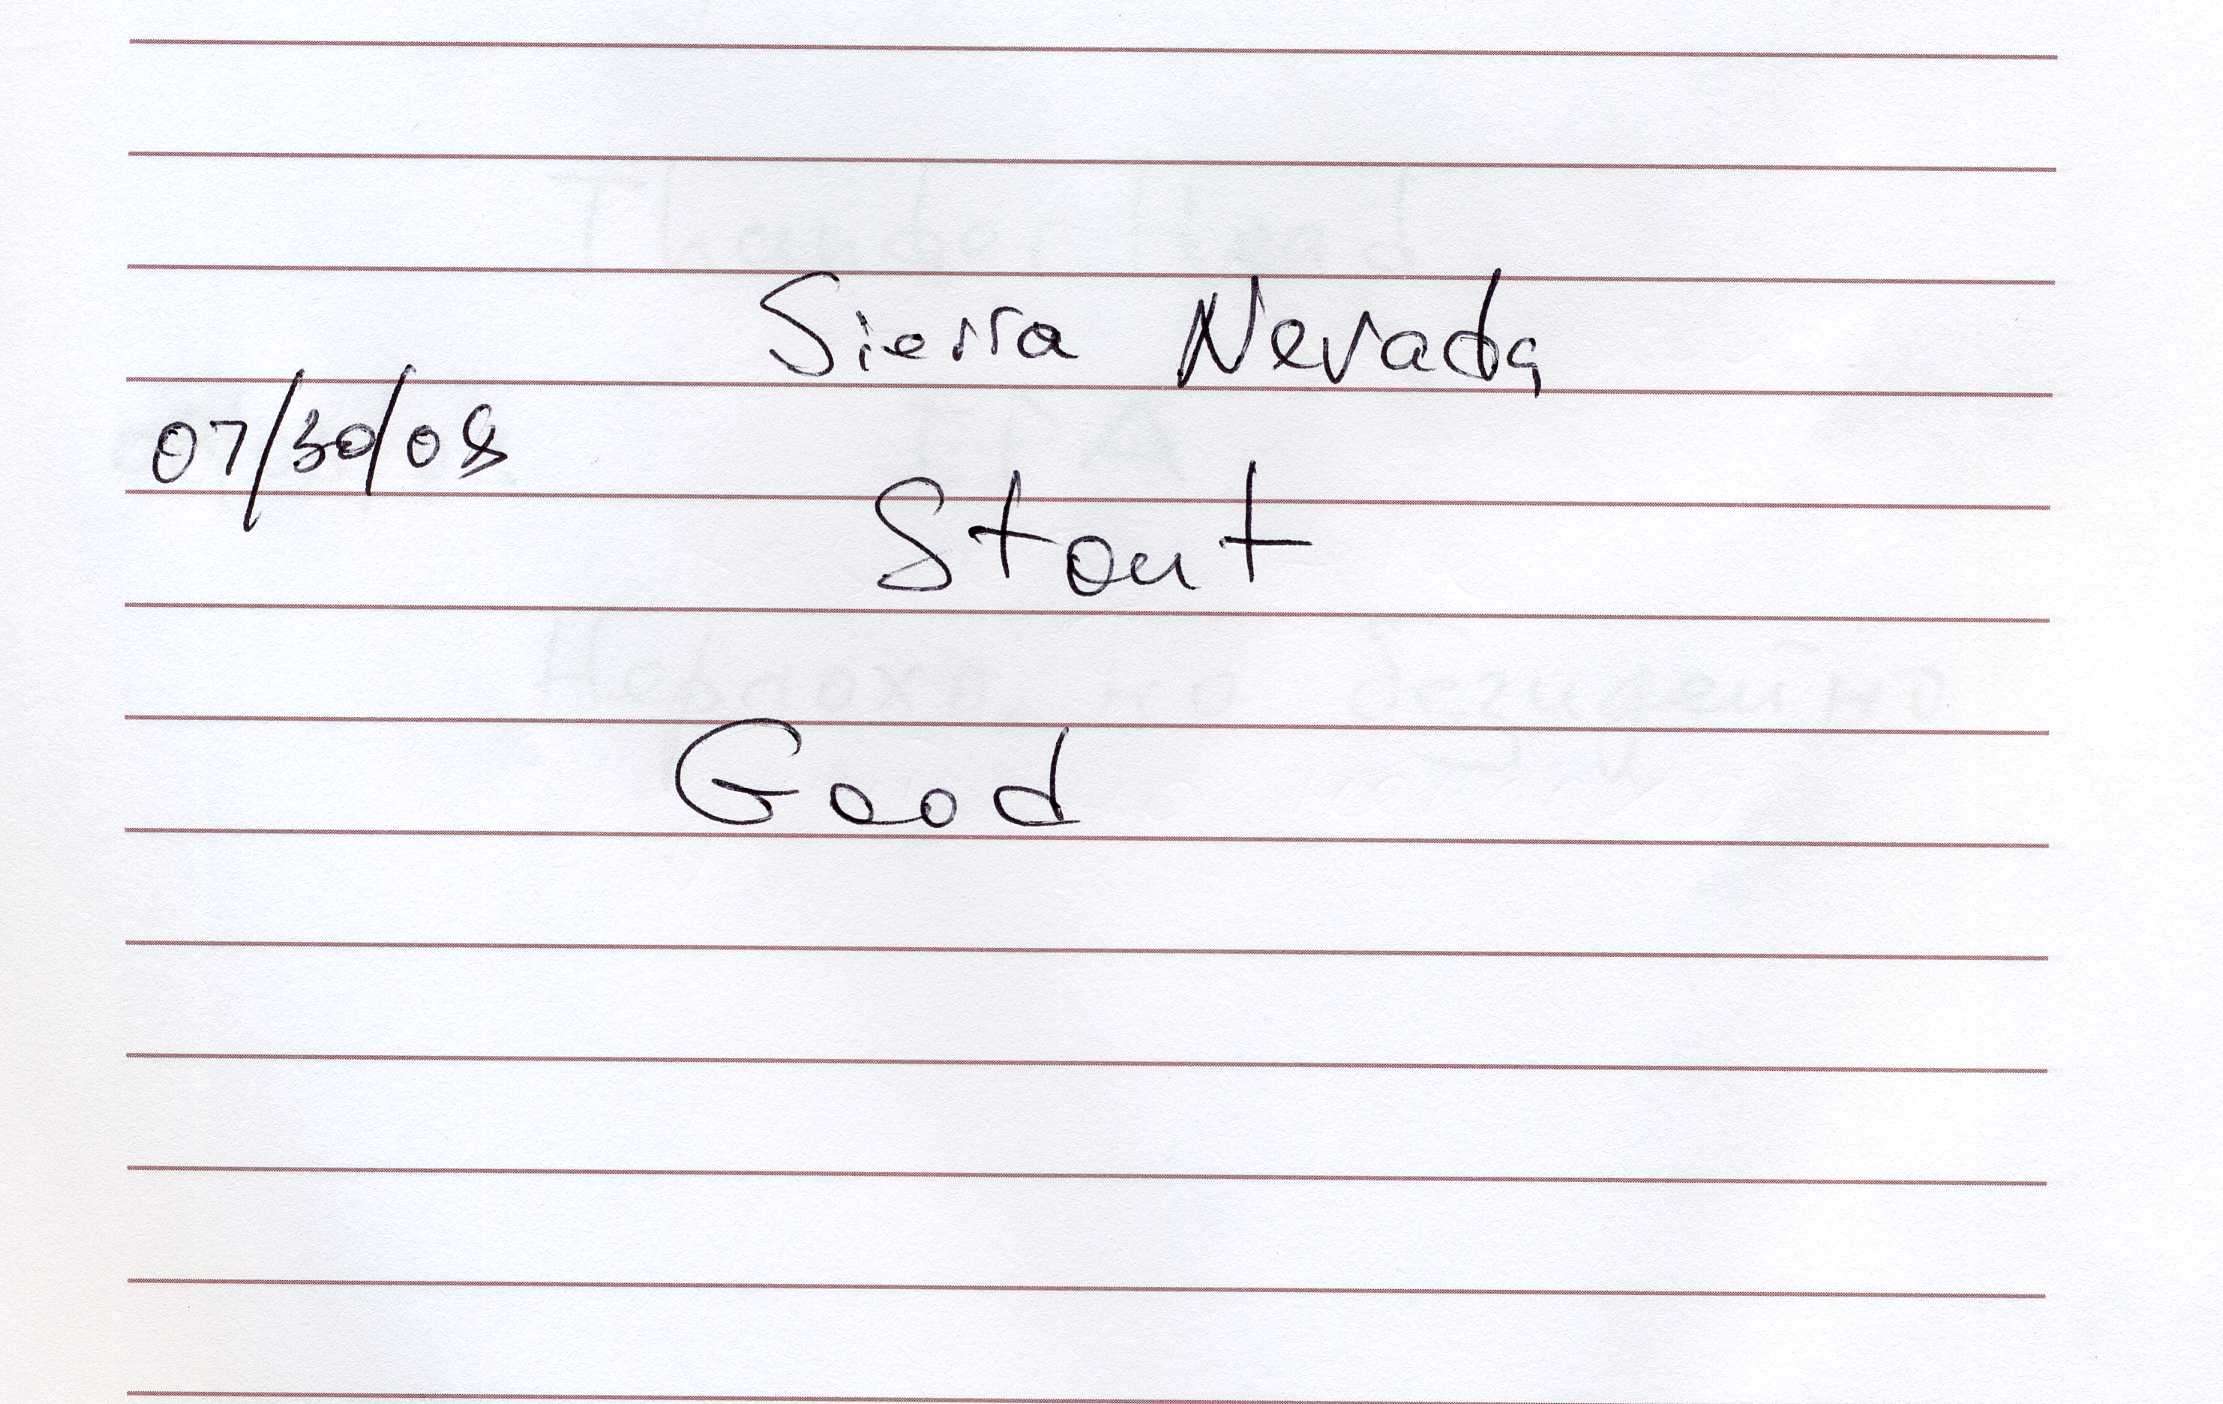 Sierra Nevada
07/30/08
Stout
Good